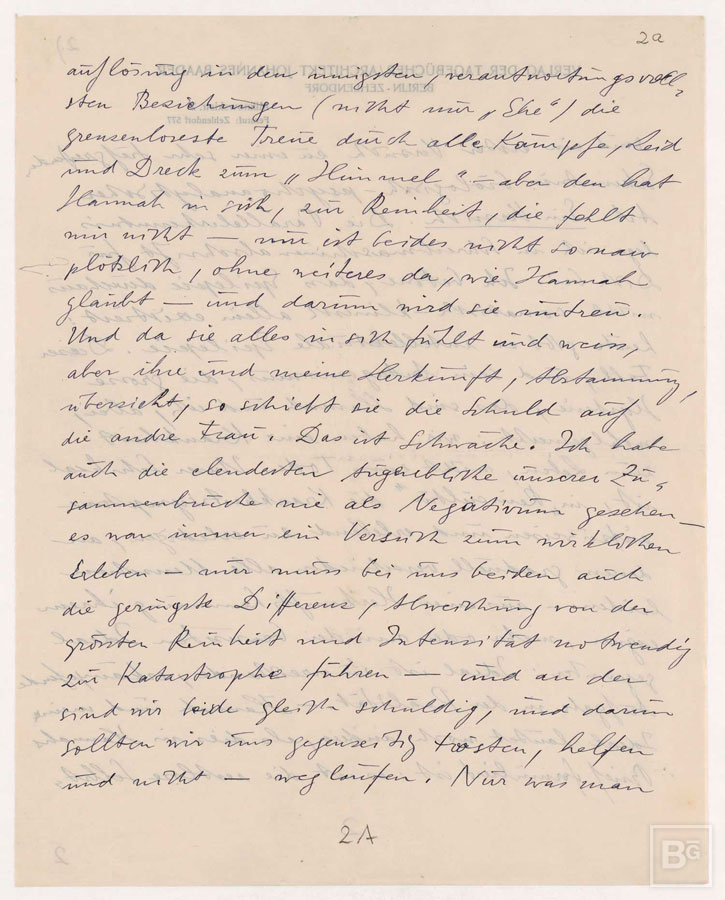 2a
auflösung in den innigsten, verantwortungsvoll-
sten Beziehungen (nicht nur „Ehe“) die
grenzenloseste Treue durch alle Kämpfe, Leid
und Dreck zum „Himmel“ – aber den hat
Hannah in sich, zur Reinheit, die fehlt
mir nicht – nur ist beides nicht so naiv
plötzlich, ohne weiteres da, wie Hannah
glaubt – und darum wird sie untreu.
Und da sie alles in sich fühlt und weiss,
aber ihre und meine Herkunft, Abstammung,
übersieht, so schiebt sie die Schuld auf
die andre Frau. Das ist Schwäche. Ich habe
auch die elendesten Augenblicke unserer Zu-
sammenbrüche nie als Negativum gesehen –
es war immer ein Versuch zum wirklichen
Erleben – nur muss bei uns beiden auch
die geringste Differenz, Abweichung von der
grössten Reinheit und Intensität notwendig
zur Katastrophe führen – und an der
sind wir beide gleich schuldig, und darum
sollten wir uns gegenseitig trösten, helfen
und nicht – weglaufen. Nur was man
2A
BG